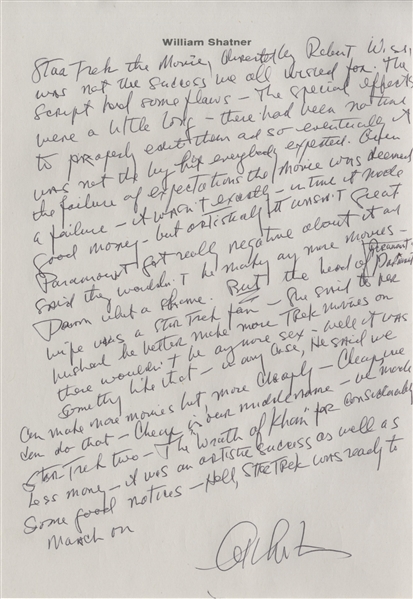 William Shatner
Star Trek the Movie, directed by Robert Wise,
was not the success we all wished for. The
script had some flaws - The special effects
were a little long - there had been no time
to properly edit them and so eventually it
was not the big hit everybody expected. Given
the failure of expectations the movie was deemed
a failure - it wasn't exactly - in time it made
good money - but artistically it wasn't great
Paramount got really negative about it and
said they wouldn't be making any more movies -
Damn what a shame. But the head of Paramount's
wife was a Star Trek fan - She said to her
husband he better make more Trek movies or
there wouldn't be any more sex - well it was
something like that - in any case, He said we
can make more movies but more cheaply - Cheap we
can do that - Cheap is our middle name - we made
Star Trek two - The Wrath of Khan" for considerably
less money - it was an artistic success as well as
some good notices - Hell, Star Trek was ready to
march on